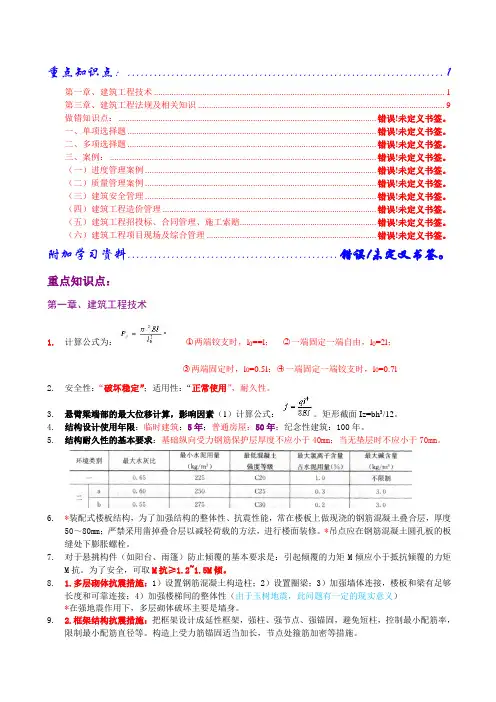 重点知识点: ........................................................................ 1
第一章、建筑工程技术 ........................................................................ 1
第三章、建筑工程法规及相关知识 ........................................................................ 9
做错知识点: ........................................................................ 错误!未定义书签。
一、单项选择题 ........................................................................ 错误!未定义书签。
二、多项选择题 ........................................................................ 错误!未定义书签。
三、案例: ........................................................................ 错误!未定义书签。
（一）进度管理案例 ........................................................................ 错误!未定义书签。
（二）质量管理案例 ........................................................................ 错误!未定义书签。
（三）建筑安全管理 ........................................................................ 错误!未定义书签。
（四）建筑工程造价管理 ........................................................................ 错误!未定义书签。
（五）建筑工程招投标、合同管理、施工索赔 ........................................................................ 错误!未定义书签。
（六）建筑工程项目现场及综合管理 ........................................................................ 错误!未定义书签。
附加学习资料 ........................................................................ 错误!未定义书签。
重点知识点：
第一章、建筑工程技术
1. 计算公式为： ①两端铰支时，l₀==l； ②一端固定一端自由，l₀=2l；
③两端固定时，l0=0.5l；④一端固定一端铰支时，l0=0.7l
2. 安全性：“破坏稳定”；适用性：“正常使用”，耐久性。
3. 悬臂梁端部的最大位移计算，影响因素（1）计算公式： 。矩形截面Iz=bh³/12。
4. 结构设计使用年限：临时建筑：5年；普通房屋：50年；纪念性建筑：100年。
5. 结构耐久性的基本要求：基础纵向受力钢筋保护层厚度不应小于40mm；当无垫层时不应小于70mm。
环境类别 最大水灰比 最小水泥用量(kg/m³) 最低混凝土强度等级 最大氯离子含量占水泥用量(%) 最大碱含量(kg/m³)
一 0.65 225 C20 1.0 不限制
二 a 0.60 250 C25 0.3 3.0
b 0.55 275 C30 0.2 3.0
6. *装配式楼板结构，为了加强结构的整体性、抗震性能，常在楼板上做现浇的钢筋混凝土叠合层，厚度
50～80mm；严禁采用凿掉叠合层以减轻荷载的方法，进行楼面装修。*吊点应在钢筋混凝土圆孔板的板
缝处下膨胀螺栓。
7. 对于悬挑构件（如阳台、雨篷）防止倾覆的基本要求是：引起倾覆的力矩M倾应小于抵抗倾覆的力矩
M抗。为了安全，可取M抗≥1.2~1.5M倾。
8. 1.多层砌体抗震措施：1）设置钢筋混凝土构造柱；2）设置圈梁；3）加强墙体连接，楼板和梁有足够
长度和可靠连接；4）加强楼梯间的整体性（由于玉树地震，此问题有一定的现实意义）
*在强地震作用下，多层砌体破坏主要是墙身。
9. 2.框架结构抗震措施：把框架设计成延性框架，强柱、强节点、强锚固，避免短柱，控制最小配筋率，
限制最小配筋直径等。构造上受力筋锚固适当加长，节点处箍筋加密等措施。